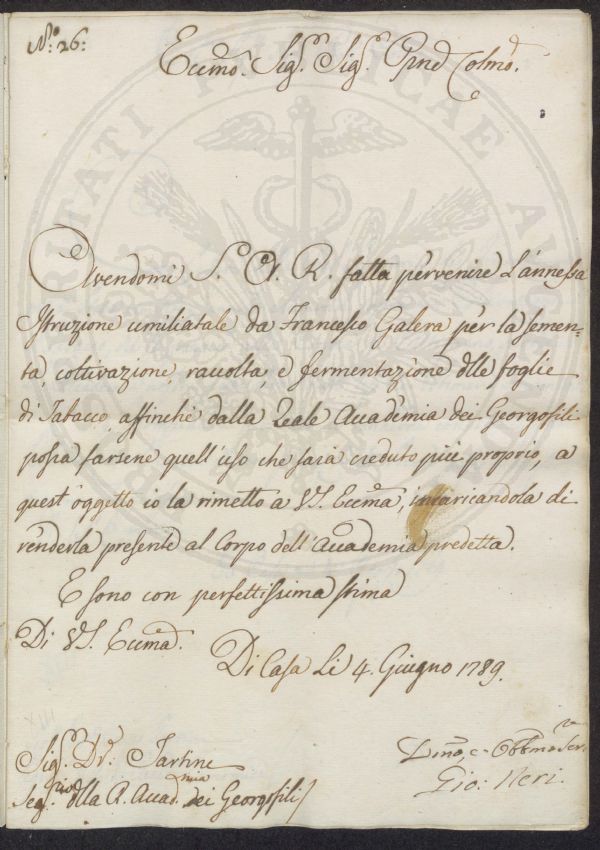 N.º 26:
Eccmo. Sig.r Sig.r Prne Colmo.
Avendomi S. A. R. fatta pervenire l'annessa
Istruzione umiliatale da Francesco Galera per la semen=
ta, coltivazione, raccolta, e fermentazione dlle foglie
di Tabacco, affinchè dalla Reale Accadèmia dei Georgofili
possa farsene quell'uso che sarà creduto più proprio, a
quest'oggetto io la rimetto a VS. Eccma, incaricandola di
renderla presente al Corpo dell'Accademia predetta.
E sono con perfettissima stima
Di VS. Eccma.
Di Casa Li 4. Giugno 1789.
Sig.r Dr. Tartini
Seg.rio dlla R. Accad.mia dei Georgofili
Dmo, e Obbmo Ser.re
Gio: Neri.